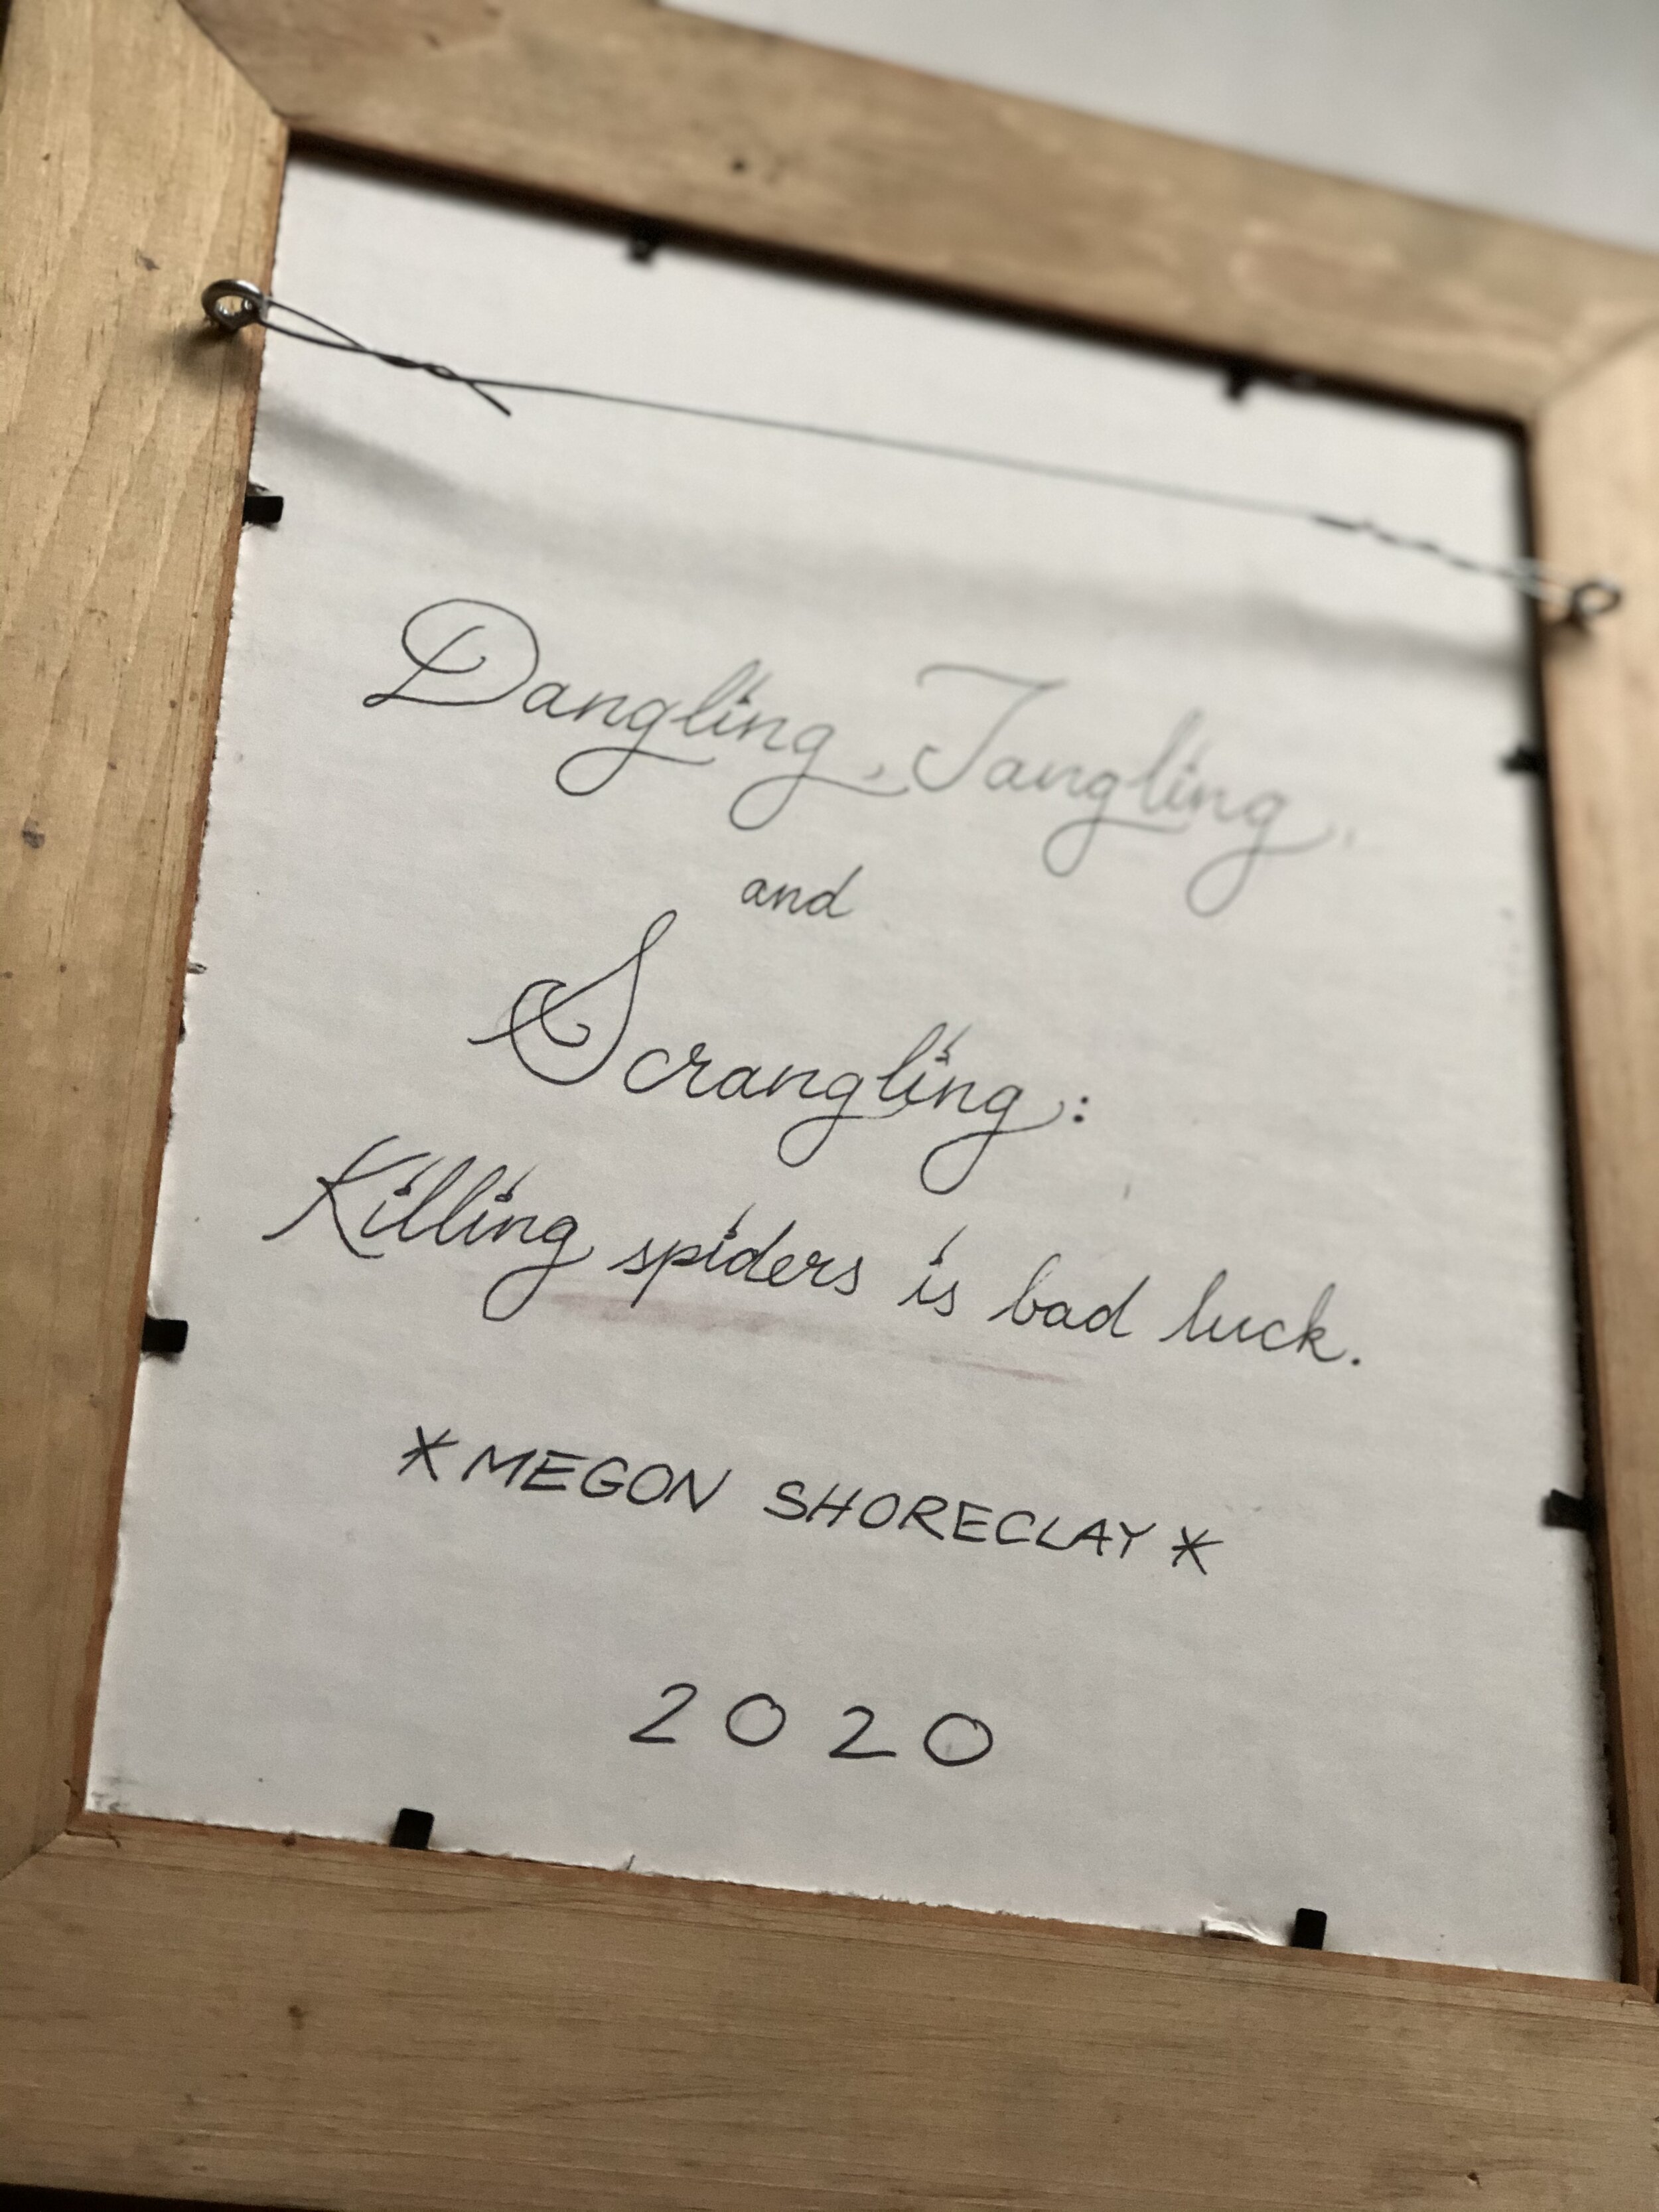 Dangling, Tangling,
and
Scrangling:
Killing spiders is bad luck.
*MEGON SHORECLAY*
2020